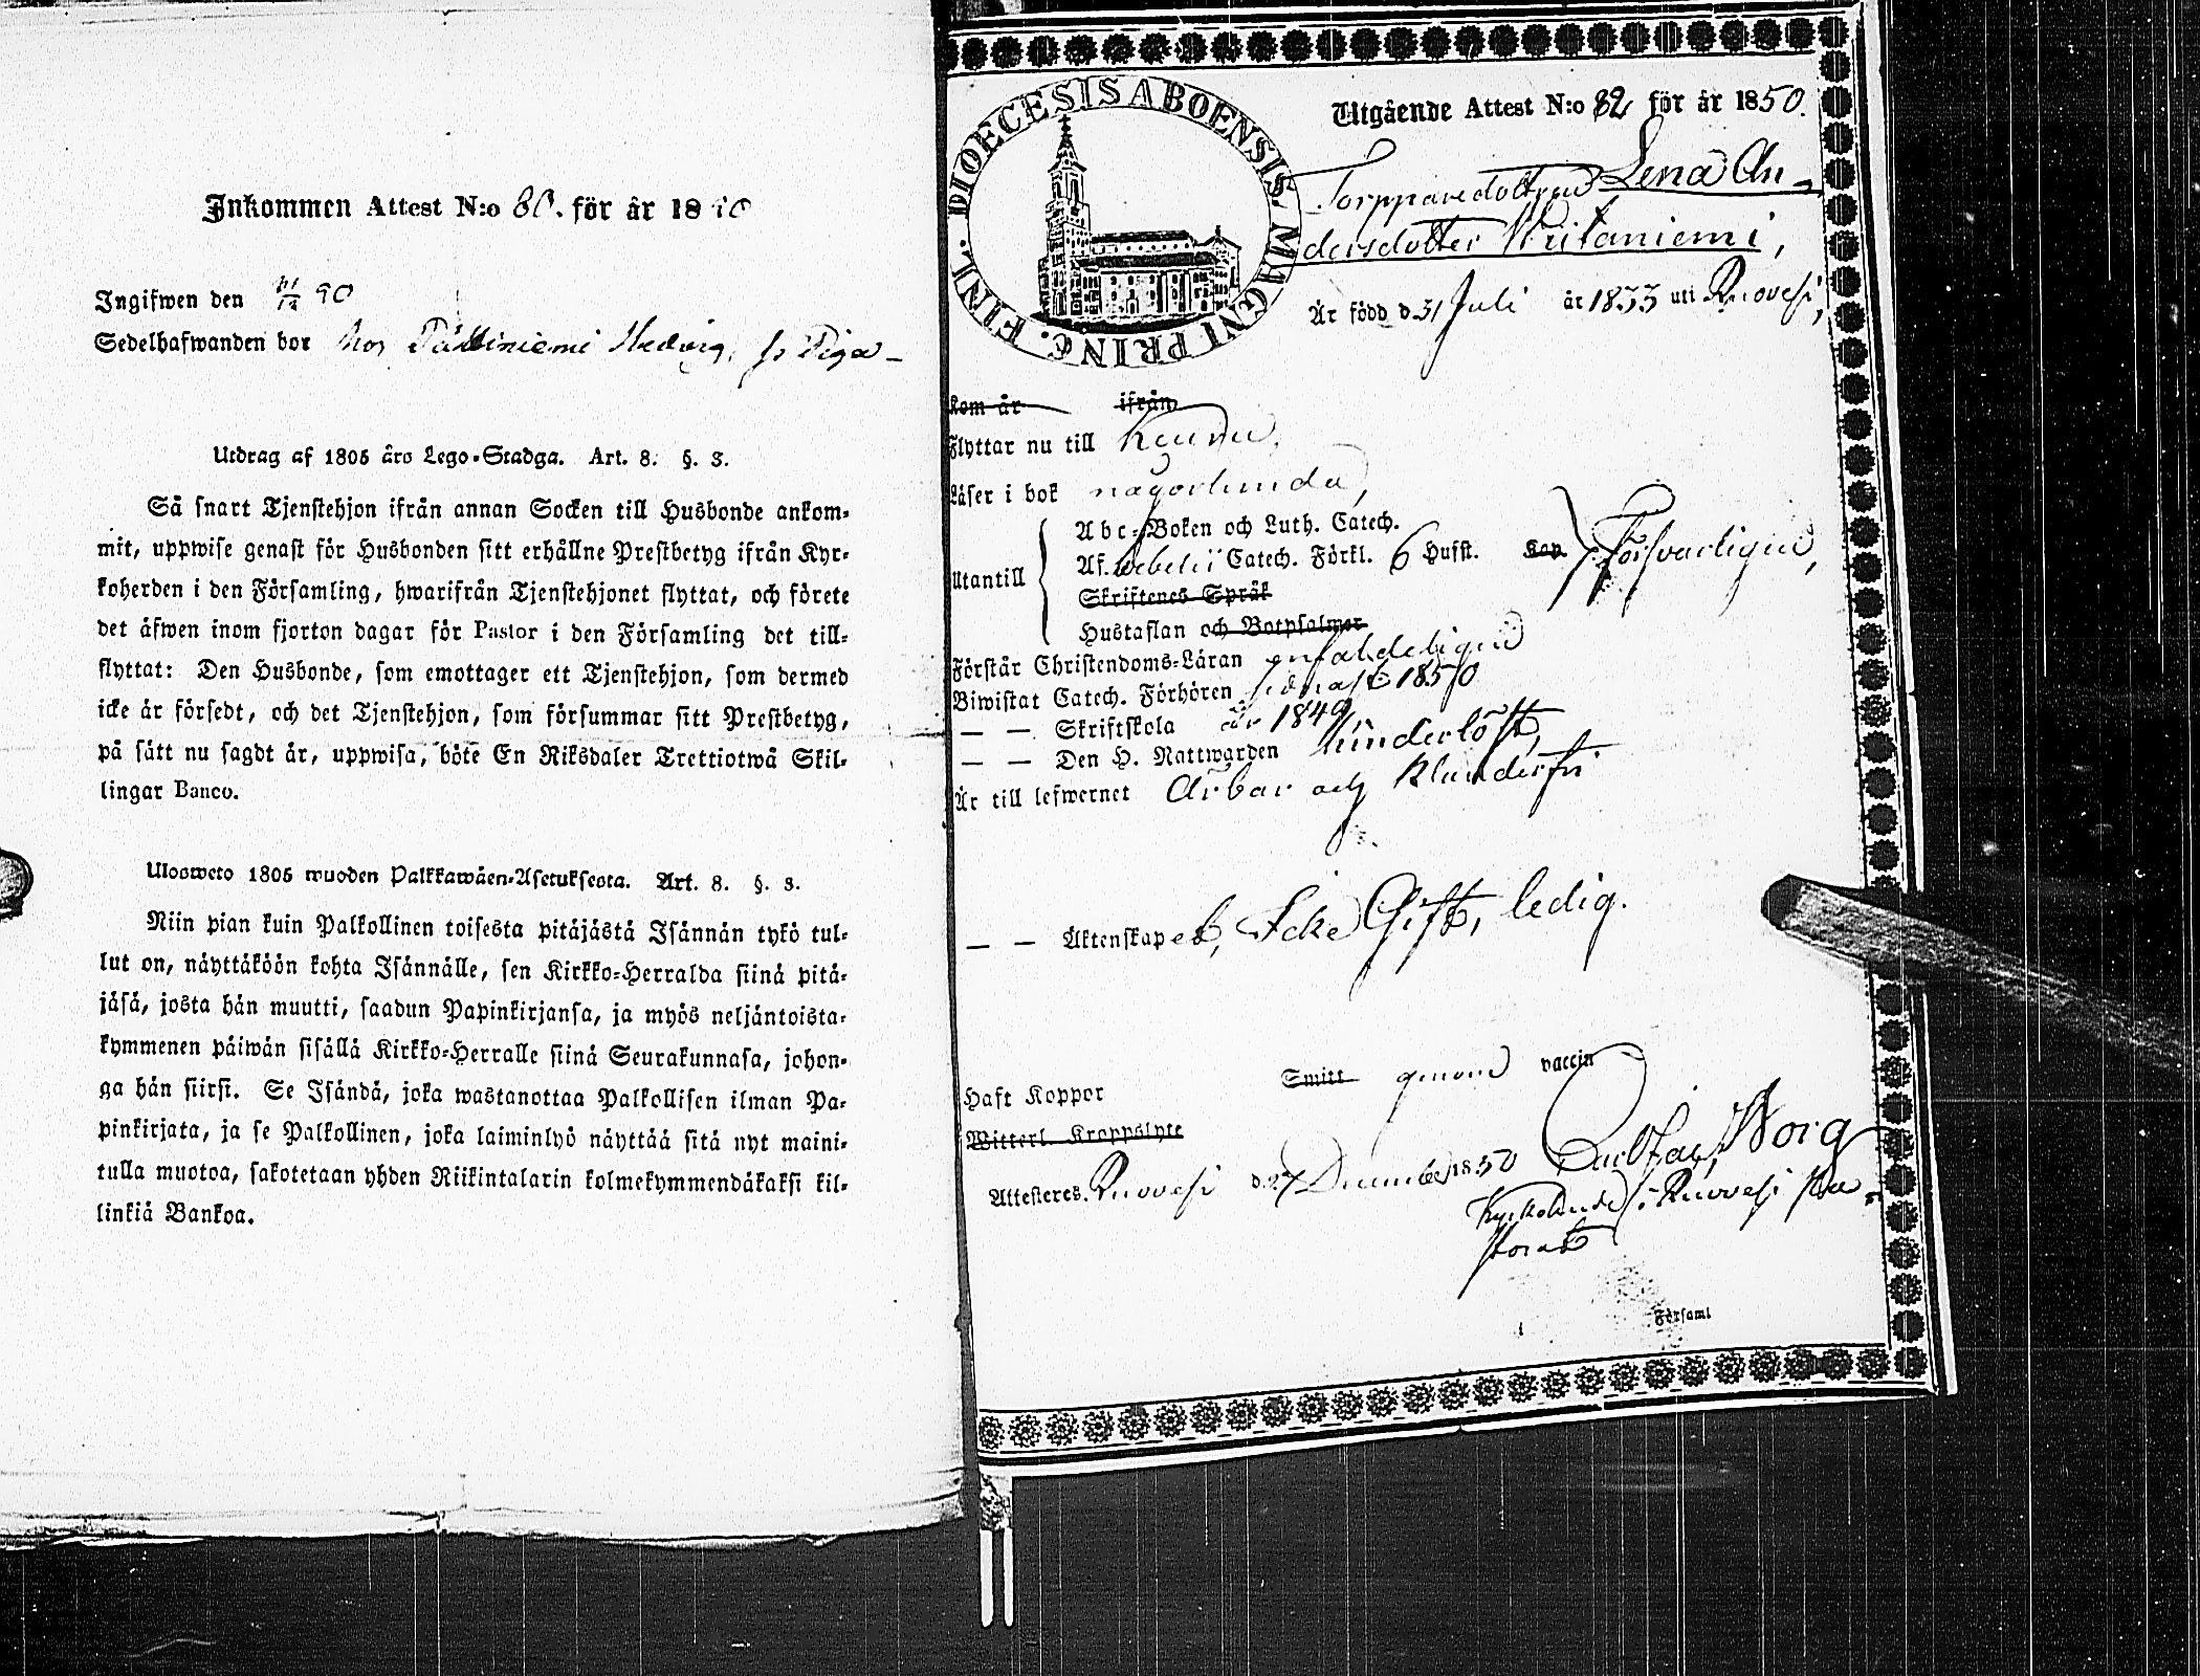 Inkommen Attest N:o 80. för år 18
Ingifwen den
Sedelhafwanden bor hos Hedvig, Piga
Utdrag af 1805 års Lego-Stadga. Art. 8. §. 3.
Så snart Tjenstehjon ifrån annan Socken till Husbonde ankom-
mit, uppwise genast för Husbonden sitt erhållne Prestbetyg ifrån Kyr-
koherden i den Församling, hwarifrån Tjenstehjonet flyttat, och förete
det äfwen inom fjorton dagar för Pastor i den Församling det till-
flyttat: Den Husbonde, som emottager ett Tjenstehjon, som dermed
icke är försedt, och det Tjenstehjon, som försummar sitt Prestbetyg,
på sätt nu sagdt är, uppwisa, böte En Riksdaler Trettiotwå Skil-
lingar Banco.
Ulosweto 1805 wuoden Palkkawäen-Asetuksesta. Art. 8. §. 3.
Niin pian kuin Palkollinen toisesta pitäjästä Isännän tykö tul-
lut on, näyttäköön kohta Isännälle, sen Kirkko-Herralda siinä pitä-
jäsä, josta hän muutti, saadun Papinkirjansa, ja myös neljäntoista-
kymmenen päiwän sisällä Kirkko-Herralle siinä Seurakunnasa, johon-
ga hän siirsi. Se Isändä, joka wastanottaa Palkollisen ilman Pa-
pinkirjata, ja se Palkollinen, joka laiminlyö näyttää sitä nyt maini-
tulla muotoa, sakotetaan yhden Riikintalarin kolmekymmendäkaksi kil-
linkiä Bankoa.
DIOECESIS ABOENSIS. MAGNI PRINC. FINL.
Utgående Attest N:o 82 för år 1850.
Torpparedottren Lena An-
dersdotter Niitaniemi,
Är född d 31 Juli år 1833 uti Ruovesi,
Kom år ifrån
Flyttar nu till Keuru,
Läser i bok någorlunda,
Utantill
Abc-Boken och Luth. Catech.
Af Catech. Förkl. 6 Hufst. Kap. Försvarligen,
Skriftenes Språk
Hustaflan och Botpsalmer
Förstår Christendoms-Läran enfaldeligen
Biwistat Catech. Förhören sednast 1850
— — Skriftskola år 1849,
— — Den H. Nattwarden hinderlöst,
Är till lefwernet Ärbar och klanderfri
— — Äktenskapet, Icke Gift, ledig.
Haft Koppor Smitt genom vaccin
Witterl. Kroppslyte
Attesteres. Ruovesi d. 27 December 1850
Kyrkoherde i Ruovesi Pa-
storat
Församl